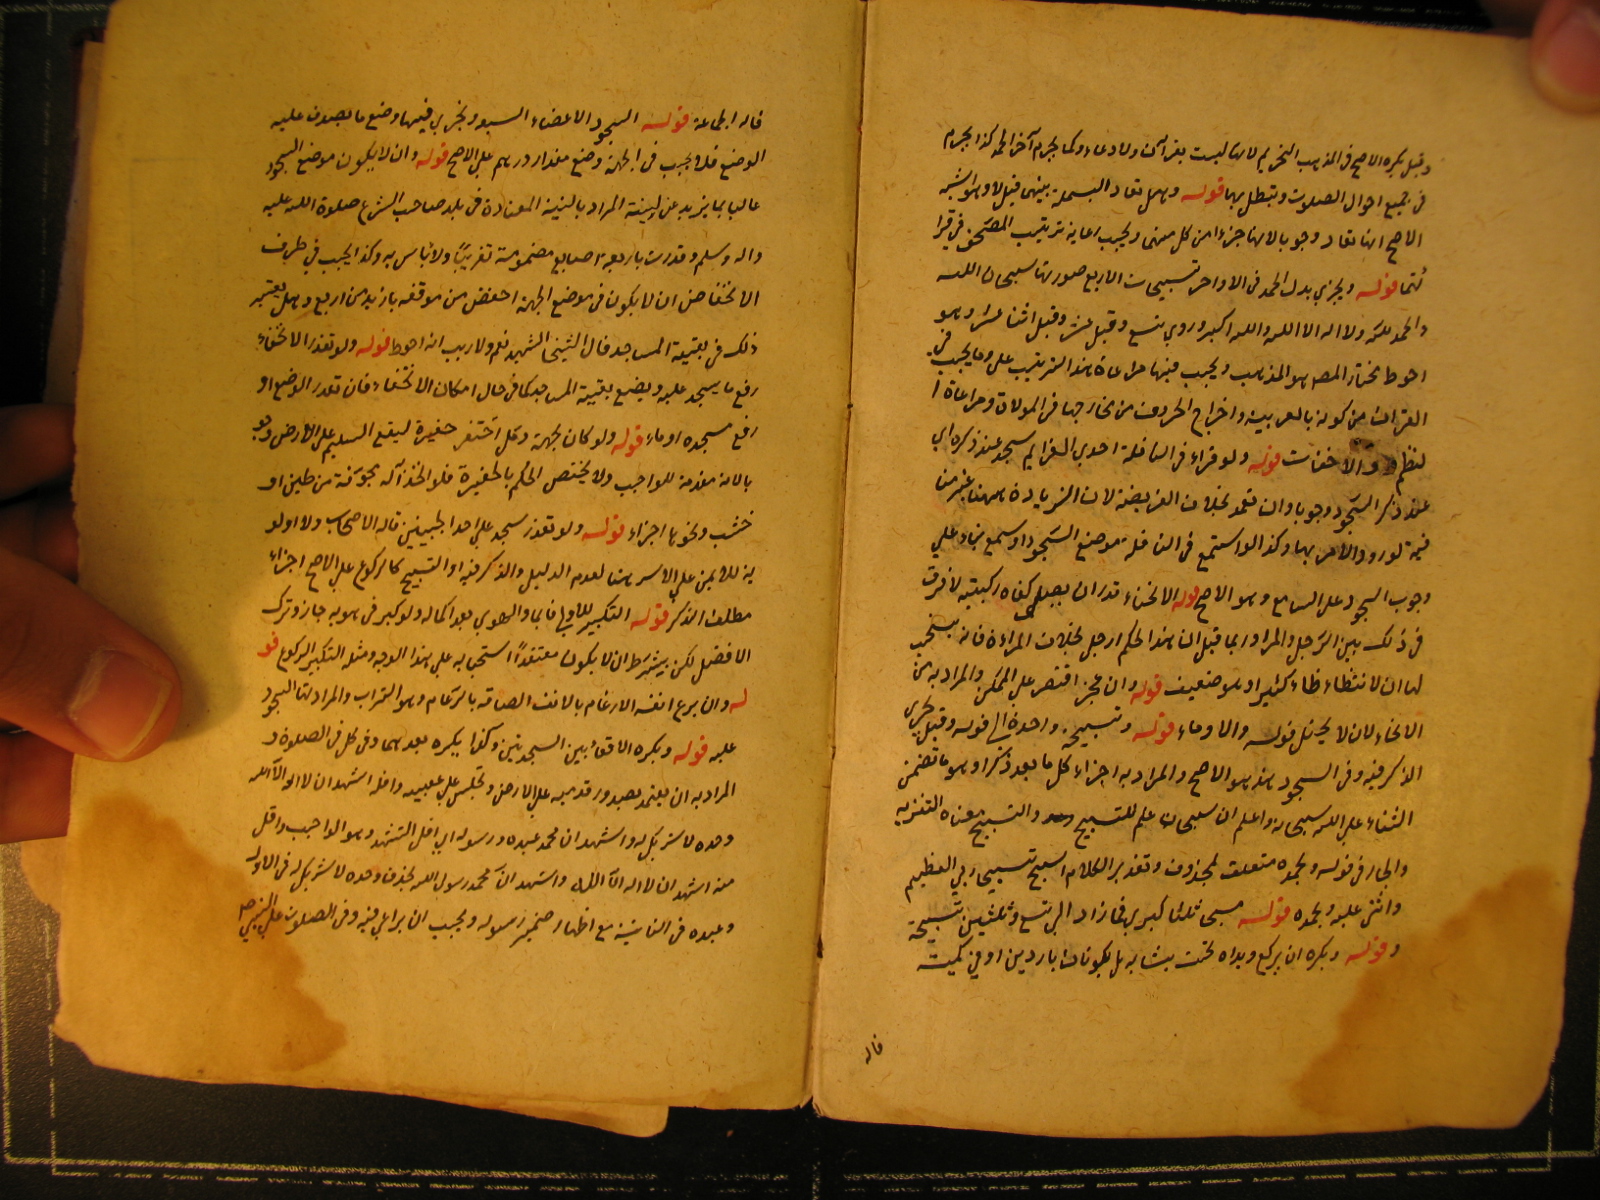 وقيل يكره الاصح في المذهب التحريم لانها ليست بقرآن ولا دعاء وكما يحرم آخر الحمد كذا يحرم
في جميع احوال الصلوت وتبطل بها قوله وهل تعاد البسملة بينهما قيل لا وهو اشبه
الاصح انها تعاد وجوبا لانها جزء من كل منهما ويجب رعاية ترتيب المصحف في قرا
ئتهما قوله ويجزي بدل الحمد في الاواخر تسبيحات الاربع صورتها سبحان الله
والحمد لله ولا اله الا الله والله اكبر وروي تسع وقيل عشر وقيل اثنا عشر وهو
احوط مختار المصـ هو المذهب ويجب فيها مراعاة هذا الترتيب على وما يجب في
القراءة من كونه بالعربية واخراج الحروف من مخارجها في الموالاة ومراعاة ا
لنظم والاخفات قوله ولو قراء في النافلة احدى العزايم سجد عند ذكره اي
عند ذكر السجود وجوبا وان تعمد بخلاف الفريضة لان الزيادة ههنا غير من
فيه لورود الامر بها وكذا لو استمع في النافلة موضع السجود او سمع بناء على
وجوب السجود على السامع وهو الاصح قوله الانحناء قدر ان يصل كفاه ركبتيه لا فرق
في ذلك بين الرجل والمراة وربما قيل ان هذا الحكم للرجل بخلاف المراءة فانه يستحب
لها ان لا تتطاءطاء كثيرا وهو ضعيف قوله وان عجز اقتصر على الممكن والمراد به من
الانحناء لان لا يختل قوله والا اوماء قوله وتسبيحة واحدة الخ قوله وقيل يجزي
الذكر فيه وفي السجود هذا هو الاصح والمراد به اجزاء كل ما يعد ذكرا وهو ما تضمن
الثناء على الله سبحانه واعلم ان سبحان علم للتسبيح والتسبيح معناه التنزيه
والجار في قوله وبحمده متعلق بمحذوف وتقدير الكلام اسبح تسبيحا ربي العظيم
واثني عليه وبحمده قوله سبحي ثلثا كبرى فما زاد الى تسع وثلثين تسبيحة
وقوله ويكره ان يركع ويداه تحت ثيابه بل تكونان بارزتين او في كميه
قاله
قاله الجماعة قوله السجود الاعضاء السبعة ويجزي فيها وضع ما يصدق عليه
الوضع فلا يجب في الجبهة وضع مقدار درهم على الاصح قوله وان لا يكون موضع السجود
عاليا بما يزيد عن لبنة المراد باللبنة المعتادة في بلد صاحب الشرع صلوة الله عليه
واله وسلم وقدرت باربع اصابع مضمومة تقريبًا ولا بأس به وكذا يجب في طرف
الانخفاض ان لا يكون في موضع الجبهة اخفض من موقفه بازيد من اربع وهل يعتبر
ذلك في بقية المساجد قال الشيخ الشهيد نعم ولا ريب انه احوط قوله ولو تعذر الانحناء
رفع ما يسجد عليه ويضع بقية المساجد كما في حال امكان الانحناء فان تعذر الوضع او
رفع مسجده اوماء قوله ولو كان بجبهة دمل احتفر حفيرة ليقع السليم على الارض وجو
با لانه مقدمة للواجب ولا يختص الحكم بالحفيرة فلو اتخذ آلة مجوفة من طين او
خشب ونحوها اجزاء قوله ولو تعذر سجد على احد الجبينين قاله الاصحاب ولا اولو
ية للايمن على الايسر هنا لعدم الدليل والذكر فيه او التسبيح كالركوع على الاصح اجزاء
مطلق الذكر قوله التكبير للاولى قايما والهوي بعد اكماله ولو كبر في هويه جاز وترك
الافضل لكن يشترط ان لا يكون معتقدًا استحبابه على هذا الوجه ومثله التكبير الركوع قو
له وان يرغم انفه الارغام بالانف الصاقه بالرغام وهو التراب والمراد هنا السجود
عليه قوله ويكره الاقعاء بين السجدتين وكذا يكره بعدهما وفي كل في الصلوة و
المراد به ان يعتمد بصدور قدميه على الارض ويجلس على عقبيه واقله اشهد ان لا اله الا الله
وحده لا شريك له واشهد ان محمد عبده ورسوله اي اقل التشهد وهو الواجب واقل
منه اشهد ان لا اله الا الله واشهد ان محمد رسول الله بحذف وحده لا شريك له في الاول
وعبده في الثانية مع اظهار ضمير رسوله ويجب ان يراعي فيه وفي الصلوت على النبي ص